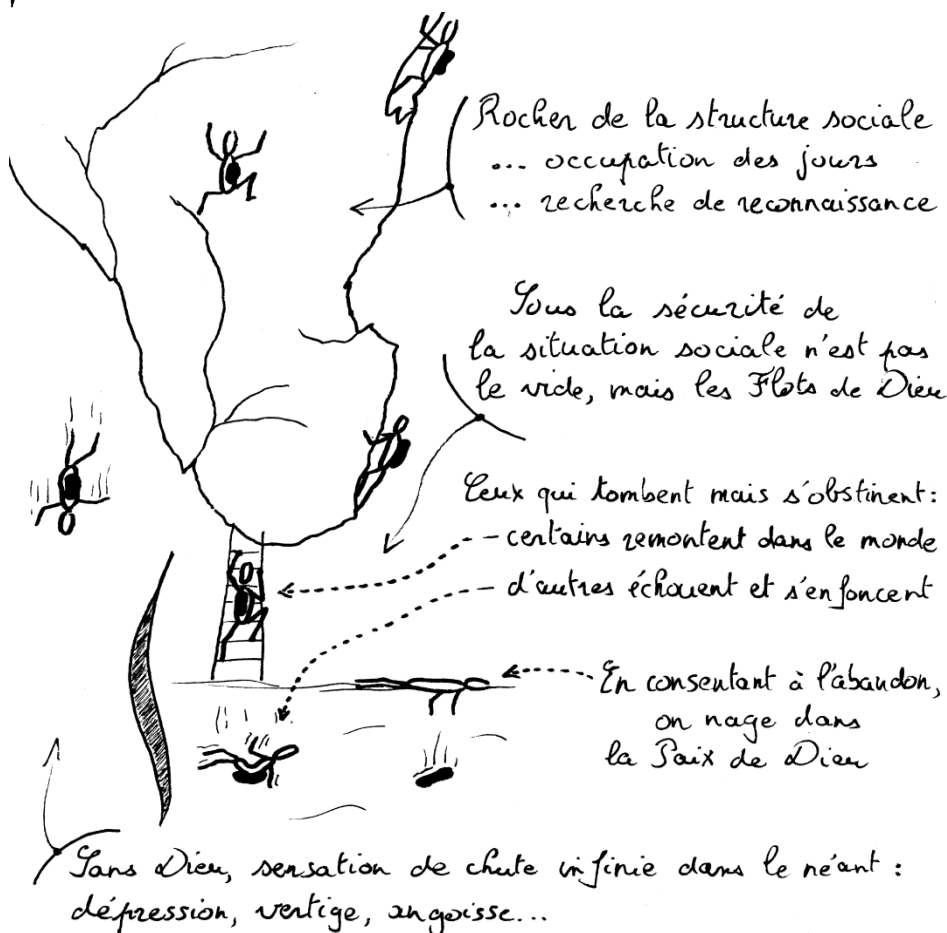 Rocher de la structure sociale
... occupation des jours
... recherche de reconnaissance
Sous la sécurité de
la situation sociale n'est pas
le vide, mais les Flots de Dieu
Ceux qui tombent mais s'obstinent :
– certains remontent dans le monde
– d'autres échouent et s'enfoncent
En consentant à l'abandon,
on nage dans
la Paix de Dieu
Sans Dieu, sensation de chute infinie dans le néant :
dépression, vertige, angoisse...